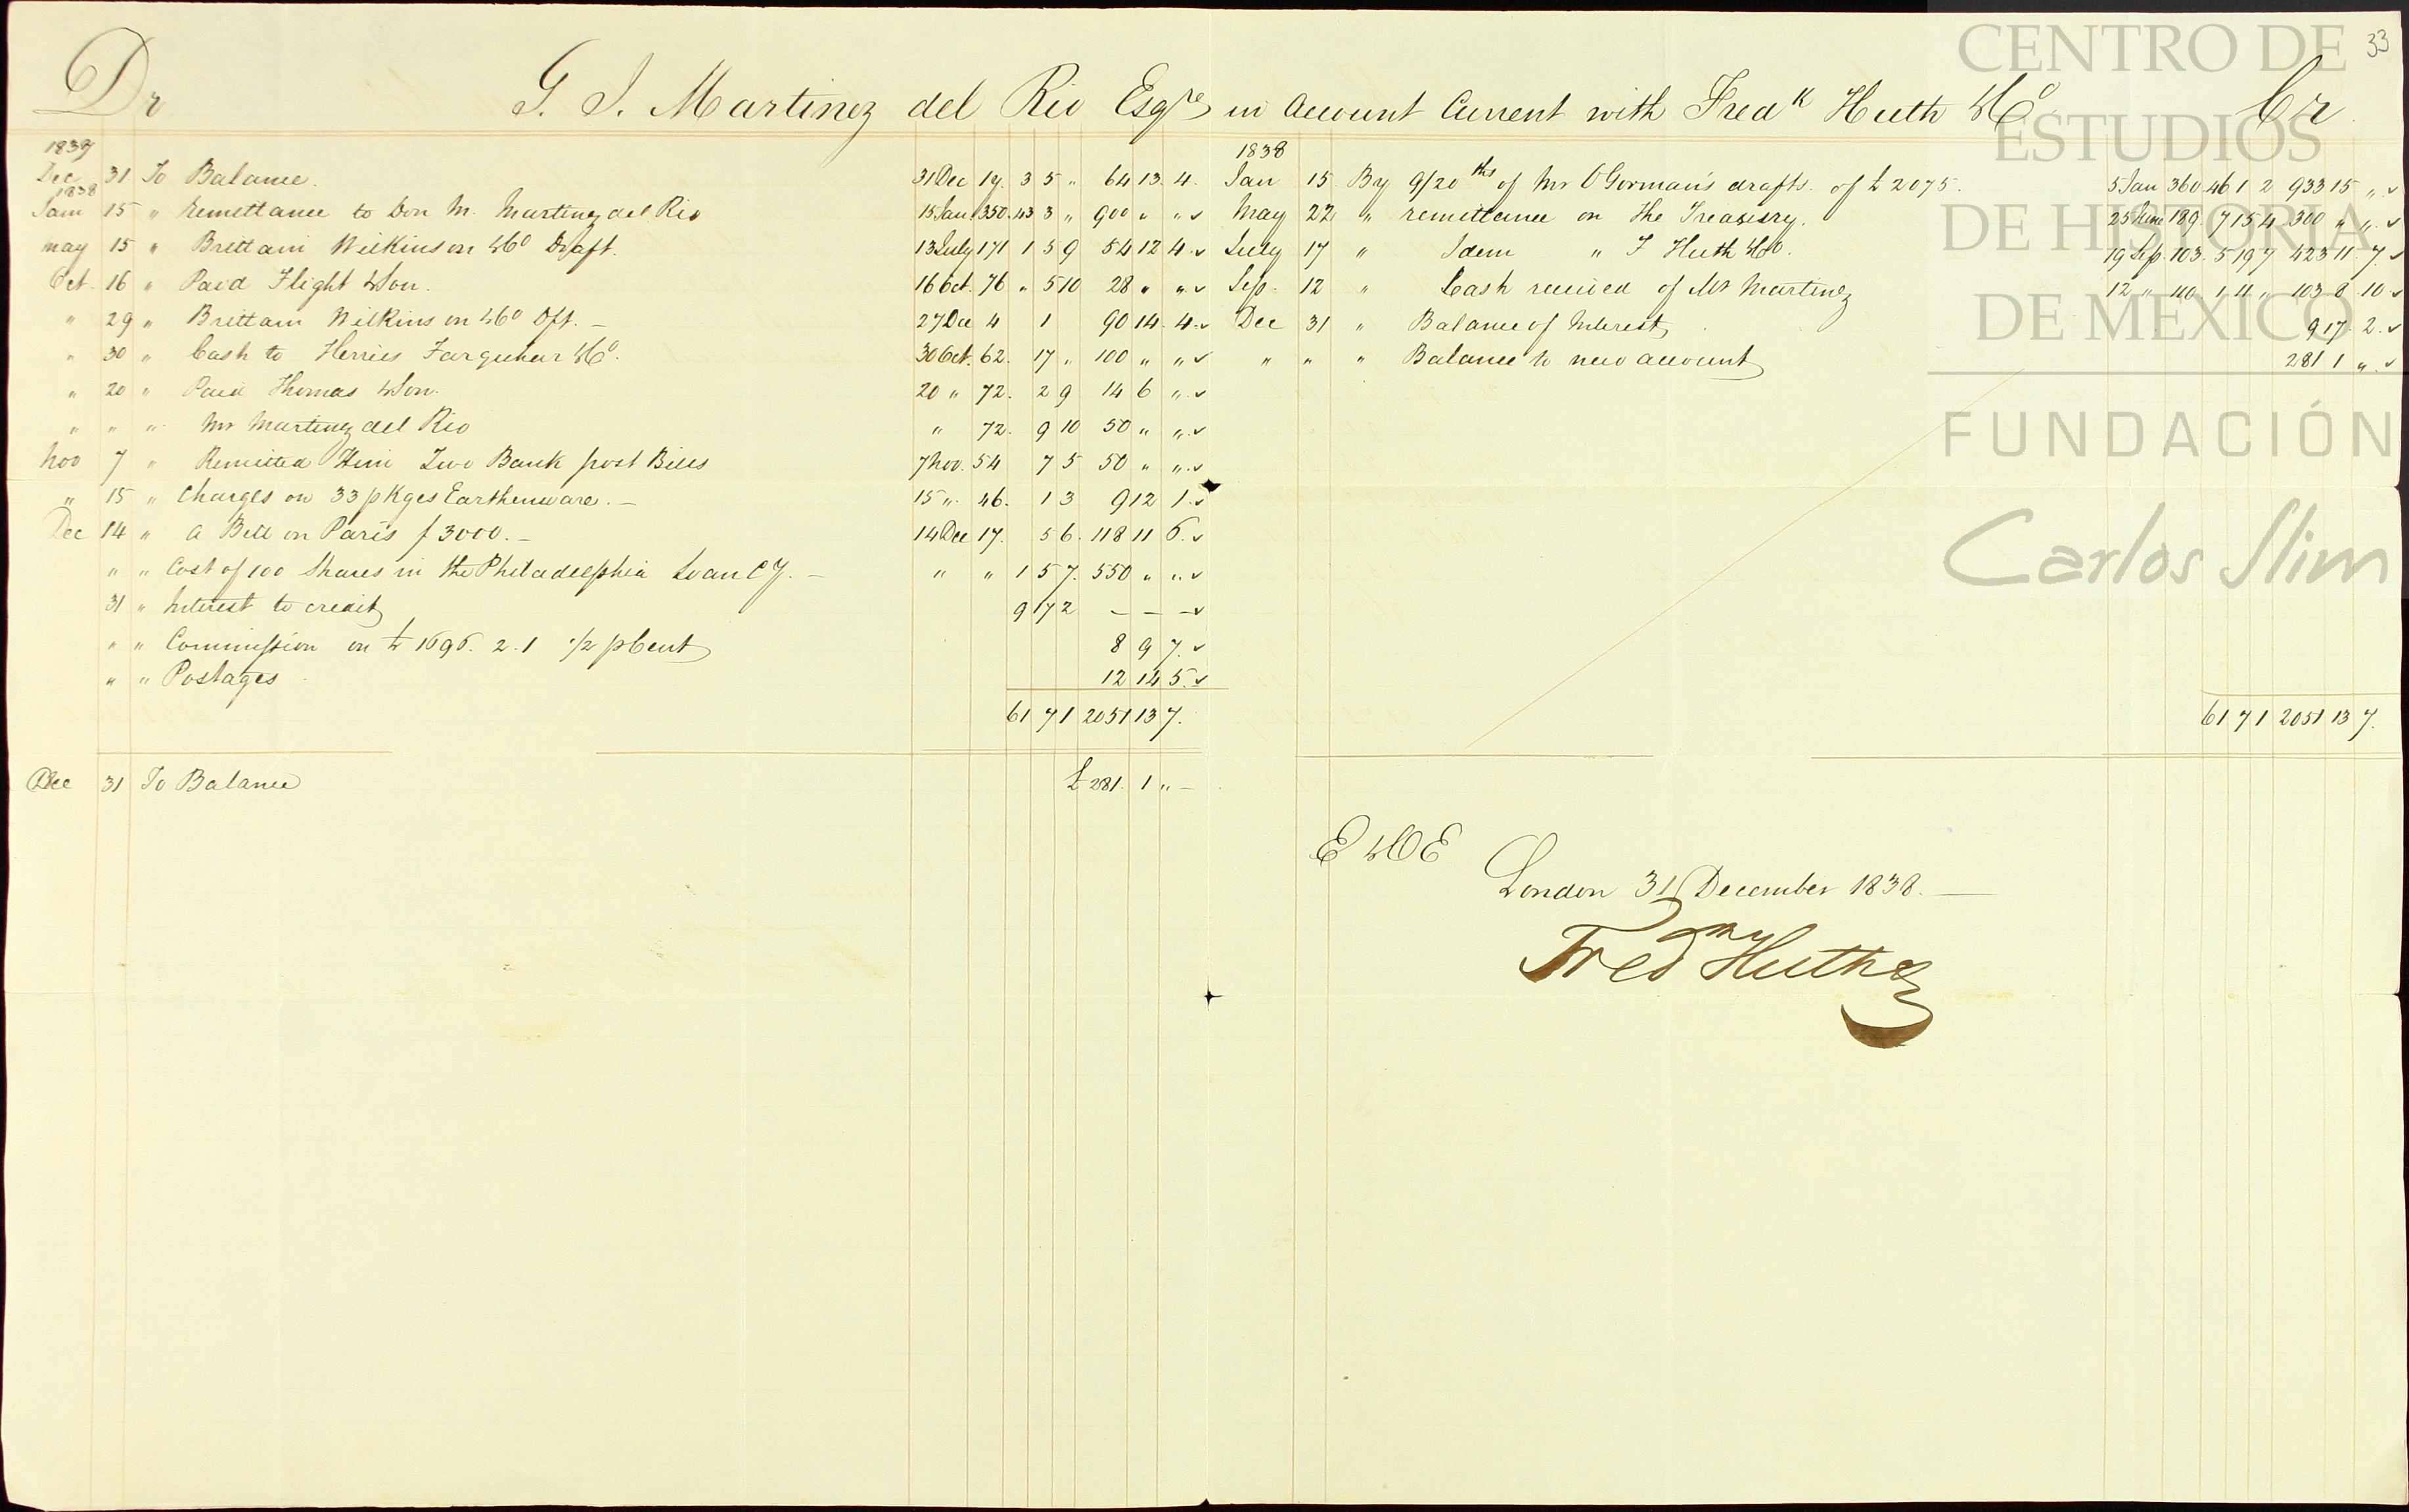 33
Dr G. J. Martinez del Rio Esqre in Account Current with Fredk Huth &Co Cr
1837
Dec 31 To Balance. 31 Dec 17. 3 5 " 64 13. 4.
1838
Jan 15 " Remittance to Don M. Martinez del Rio 15 Jan 350. 43 3 " 900 " " ✓
May 15 " Brittain Wilkinson &Co Draft. 13 July 171 1 5 9 54 12 4. ✓
Oct. 16 " Paid Flight &Son. 16 Oct. 76 " 5 10 28 " " ✓
" 29 " Brittain Wilkinson &Co Dft. — 27 Dec 4 1 90 14. 4. ✓
" 30 " Cash to Herries Farquhar &Co. 30 Oct. 62. 17 " 100 " " ✓
" 20 " Paid Thomas &Son. 20 " 72. 2 9 14 6 " ✓
" " " Mr Martinez del Rio " 72. 9 10 50 " " ✓
Nov 7 " Remitted Him Two Bank post Bills 7 Nov. 54 7 5 50 " " ✓
" 15 " Charges on 33 pKges Earthenware. — 15 " 46. 1 3 9 12 1. ✓
Dec 14 " a Bill on Paris f 3000. — 14 Dec 17. 5 6. 118 11 6. ✓
" " Cost of 100 Shares in the Philadelphia Loan Cy. — " " 1 5 7. 550 " " ✓
31 " Interest to credit 9 17 2 — — — ✓
" " Commission on £ 1696. 2. 1 1/2 pCent 8 9 7. ✓
" " Postages 12 14 5. ✓
61 7 1 2051 13 7.
Dec 31 To Balance £ 281. 1 " —
1838
Jan 15 By 9/20ths of Mr O'Gorman's drafts of £ 2075. 5 Jan 360 46 1 2 933 15 " ✓
May 22 " remittance on the Treasury. 25 June 189 7 15 4 300 " " ✓
July 17 " Idem " F Huth &Co. 19 Sep. 103. 5 19 7 423 11. 7. ✓
Sep. 12 " Cash received of Mr Martinez 12 " 110 1 11 " 103 8 10 ✓
Dec 31 " Balance of Interest 9 17. 2. ✓
" " " Balance to new account 281 1 " ✓
61 7 1 2051 13 7.
E &O E
London 31 December 1838. —
Fred Huth &
CENTRO DE
ESTUDIOS
DE HISTORIA
DE MEXICO
FUNDACIÓN
Carlos Slim